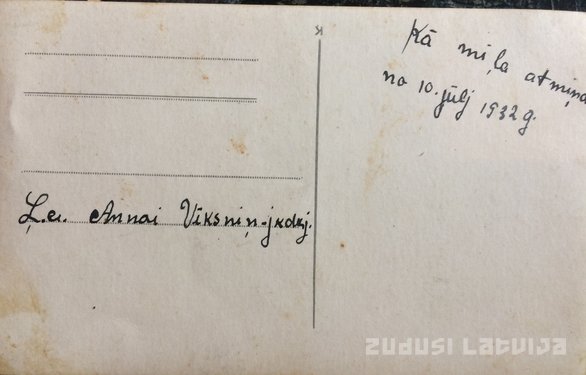 Kā mīļa atmiņa
no 10. jūlj 1932 g.
Ļ.c. Annai Vīksniņ-jkdzj.
ZUDUSI LATVIJA